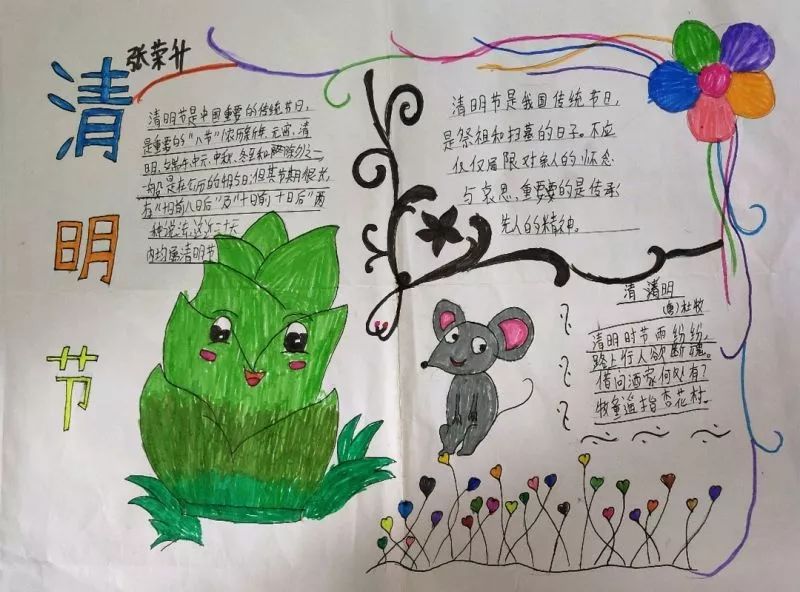 清
明
节
张荣升
清明节是中国重要的传统节日,
是重要的"八节"(农历新年、元宵、清
明、端午、中元、中秋、冬至和除夕)之一
般是在公历的4月5日,但其节期很长
有"十日前八日后"及"十日前十日后"两
种说法,这近二十天
内均属清明节
清明节是我国传统节日,
是祭祖和扫墓的日子。不应
仅仅局限对亲人的怀念
与哀思,重要的是传承
先人的精神。
清 清明
(唐)杜牧
清明时节雨纷纷,
路上行人欲断魂。
借问酒家何处有?
牧童遥指杏花村。